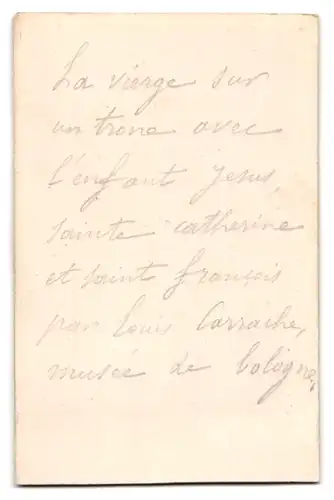 La vierge sur
un trone avec
l'enfant Jesus,
sainte catherine
et saint françois
par Louis Carrache,
musée de bologne,